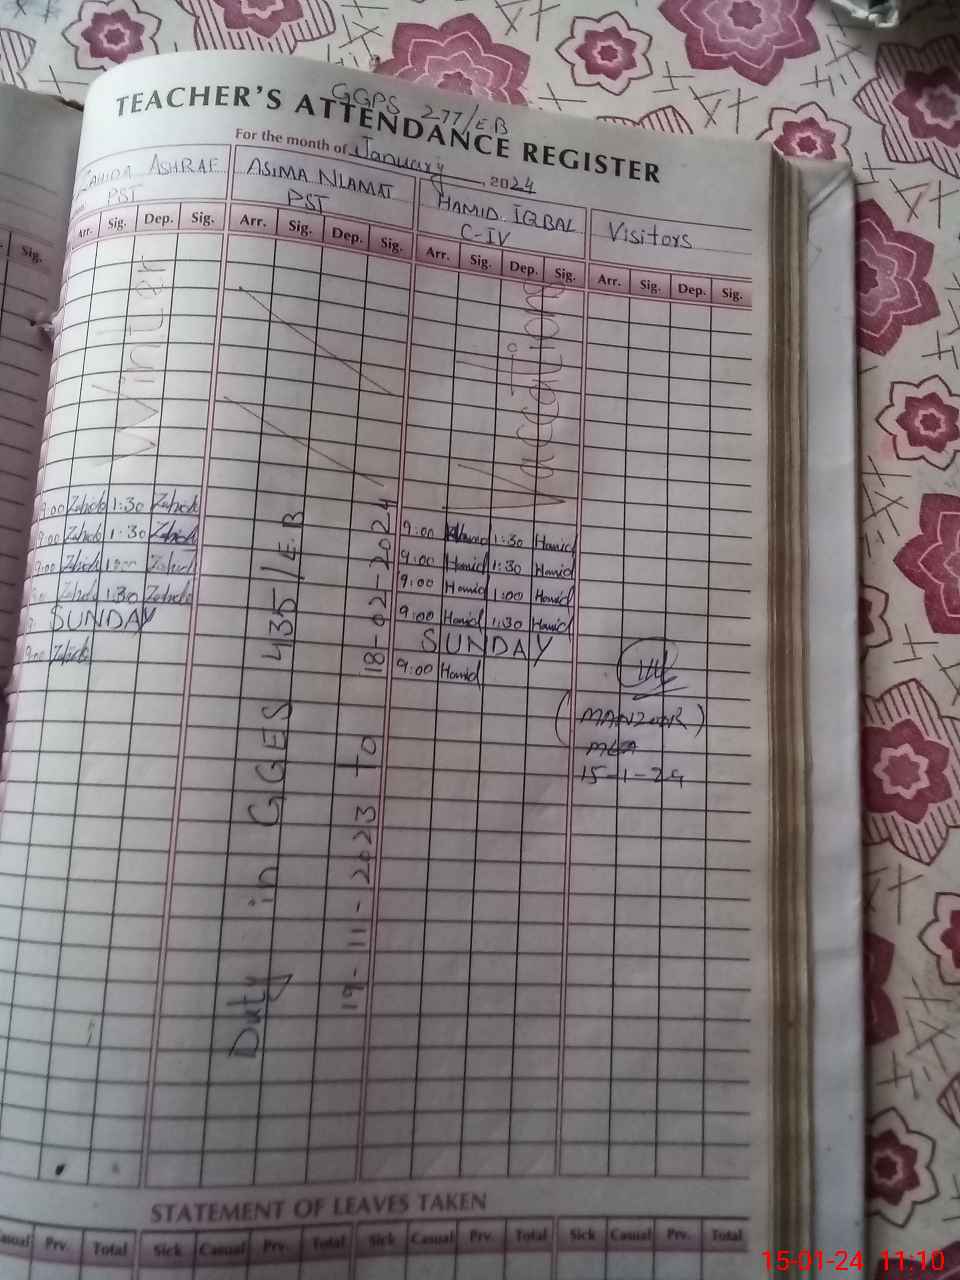 GGPS 277/EB
TEACHER'S ATTENDANCE REGISTER
For the month of January, 2024
ZAHIDA ASHRAF
PST
ASIMA NIAMAT
PST
HAMID IQBAL
C-IV
Visitors
Sig.
Arr. Sig. Dep. Sig. Arr. Sig. Dep. Sig. Arr. Sig. Dep. Sig. Arr. Sig. Dep. Sig.
Winter Vaccations
9:00 Zahida 1:30 Zahida
9:00 Zahida 1:30 Zahida
9:00 Zahida 1:00 Zahida
Zahida 1:30 Zahida
SUNDAY
9:00 Zahida
Duty in GGES 435/E.B
19-11-2023 TO 18-02-2024
9:00 Hamid 1:30 Hamid
9:00 Hamid 1:30 Hamid
9:00 Hamid 1:00 Hamid
9:00 Hamid 1:30 Hamid
SUNDAY
9:00 Hamid
(MANZOOR)
MEA
15-1-24
STATEMENT OF LEAVES TAKEN
Casual Prv. Total Sick Casual Prv. Total Sick Casual Prv. Total Sick Casual Prv. Total
15-01-24 11:10